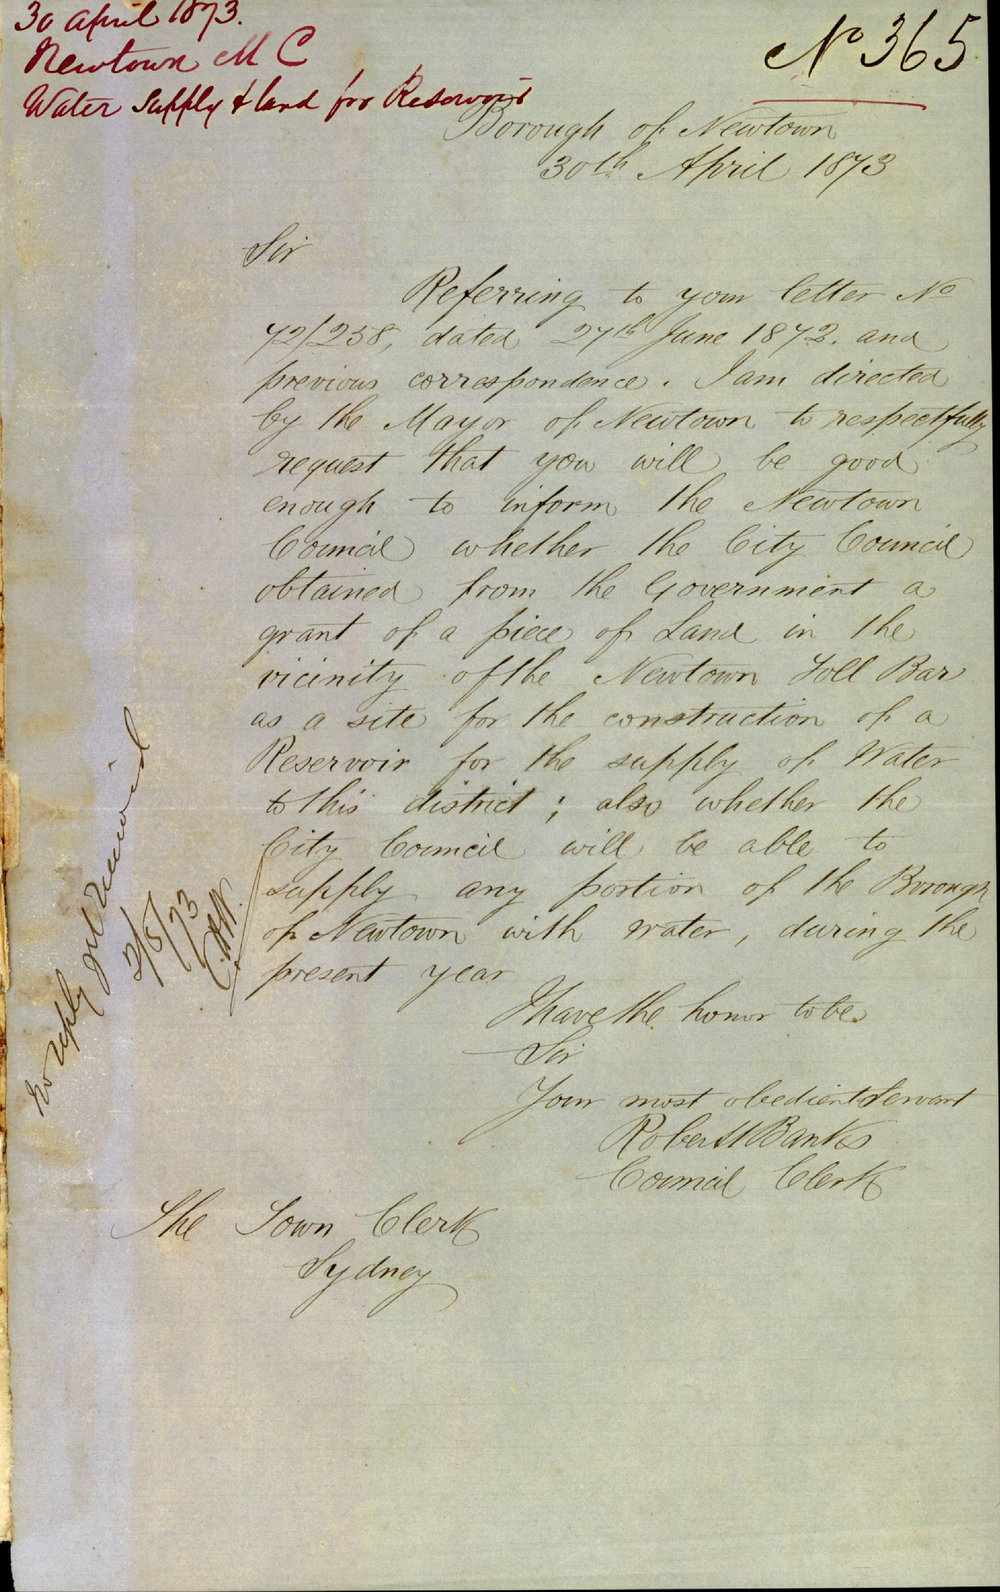 30 April 1873.
Newtown M C
Water Supply & land for Reservoir
No 365
Borough of Newtown
30th April 1873
Sir
Referring to your letter No
72/258, dated 27th June 1872. and
previous correspondence. I am directed
by the Mayor of Newtown to respectfully
request that you will be good
enough to inform the Newtown
Council whether the City Council
obtained from the Government a
grant of a piece of Land in the
vicinity of the Newtown Toll Bar
as a site for the construction of a
Reservoir for the supply of Water
to this district; also whether the
City Council will be able to
supply any portion of the Borough
of Newtown with water, during the
present year
I have the honor to be
Sir
Your most obedient Servant
Robert Banks
Council Clerk
The Town Clerk
Sydney
no reply
2/5/73